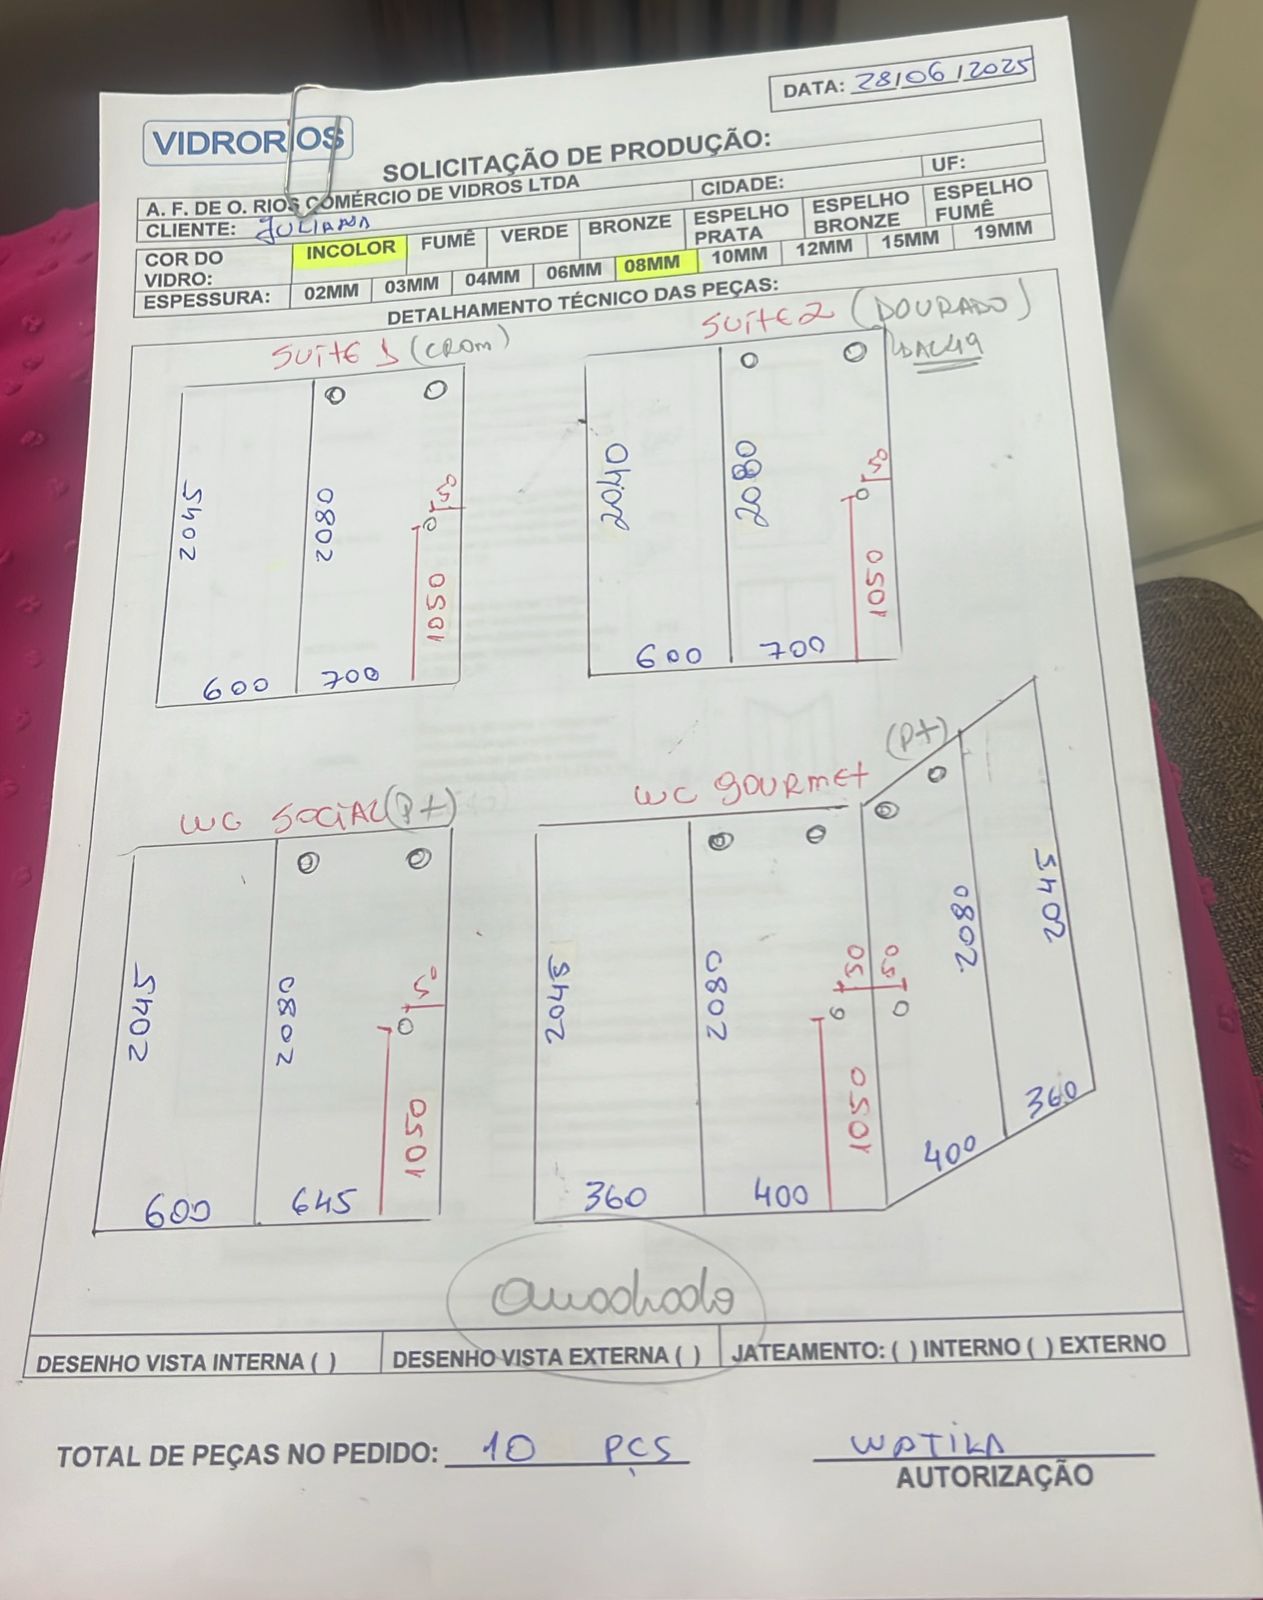 DATA: 28/06/2025
VIDRORIOS
SOLICITAÇÃO DE PRODUÇÃO:
A. F. DE O. RIOS COMÉRCIO DE VIDROS LTDA CIDADE: UF:
CLIENTE: JULIANA
COR DO VIDRO: INCOLOR FUMÊ VERDE BRONZE ESPELHO PRATA ESPELHO BRONZE ESPELHO FUMÊ
ESPESSURA: 02MM 03MM 04MM 06MM 08MM 10MM 12MM 15MM 19MM
DETALHAMENTO TÉCNICO DAS PEÇAS:
SUÍTE 1 (CROM)
2045
2080
50
1050
600 700
SUÍTE 2 (DOURADO)
2040
2080
50
1050
600 700
WC SOCIAL (Pt)
2045
2080
50
1050
600 645
WC GOURMET (Pt)
2045
2080
50
50
1050
2080
2045
360 400 400 360
Quadrado
DESENHO VISTA INTERNA ( ) DESENHO VISTA EXTERNA ( ) JATEAMENTO: ( ) INTERNO ( ) EXTERNO
TOTAL DE PEÇAS NO PEDIDO: 10 PÇS
WATILA
AUTORIZAÇÃO